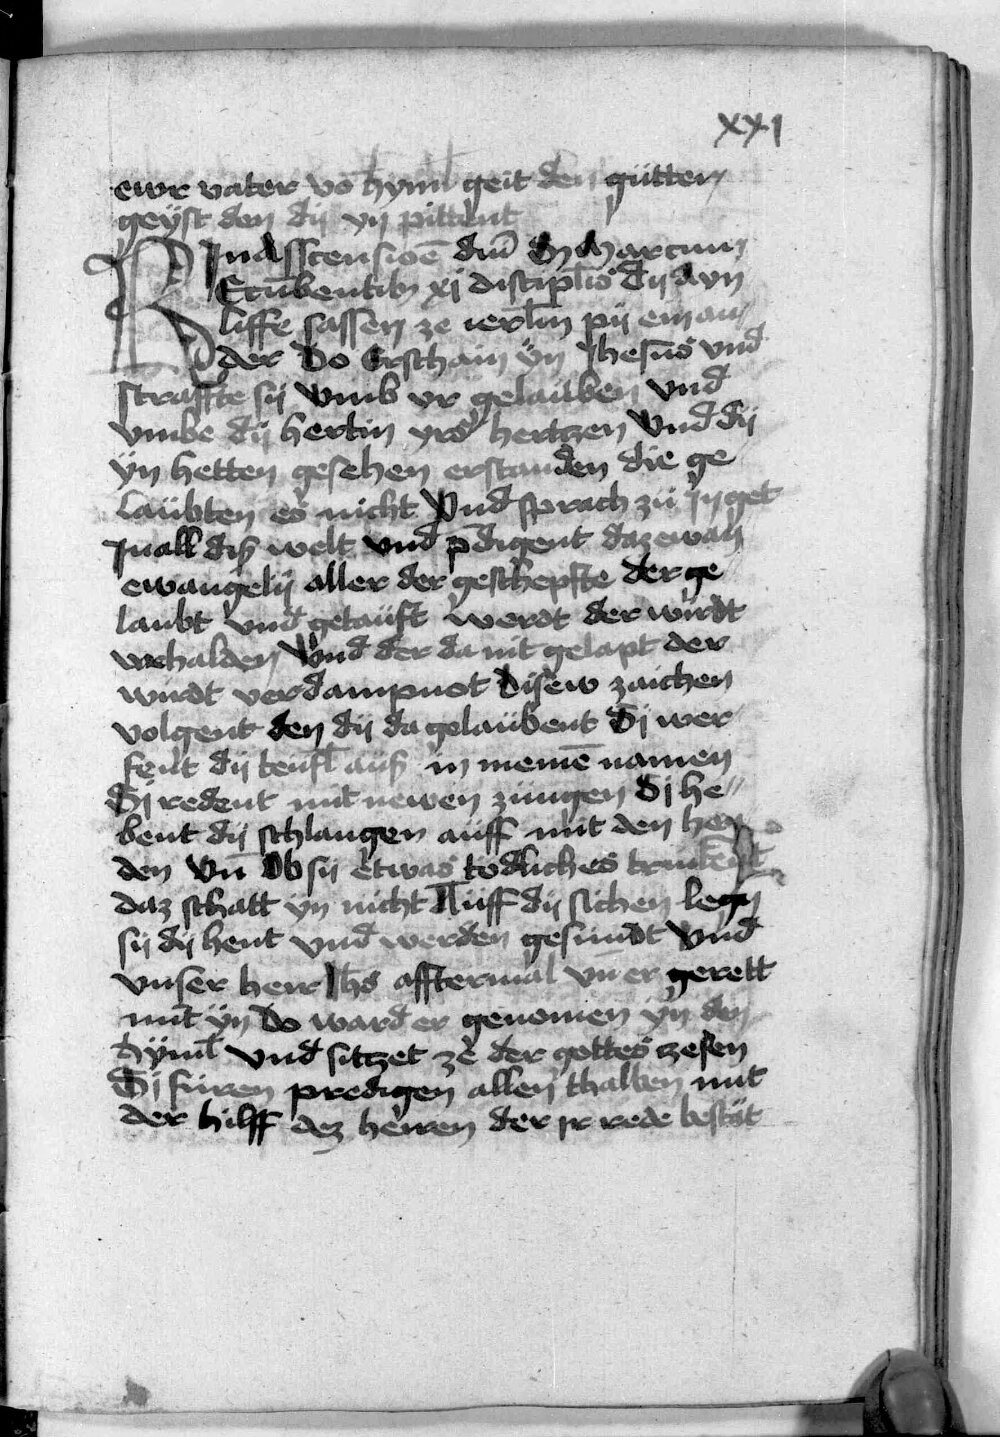 xxi
ewr vater vō hyml geit den gütten
geÿst den dÿ yn pittent
In asscensioē dm̄ Marcum
Recūbentibꝫ xj discipl̄is Dÿ ayn
liffe sassen ze ierl̄m pÿ einan
der Do Erschain ÿn Jhesus vnd
straffte sÿ vmb yr gelauben vnd
vmbe dÿ hertin yrs hertzen Vnd dÿ
ÿn hetten gesehen erstanden die ge
laübten es nicht Vnd sprach zü jn get
Jn all diß welt vnd p̄digent daz ewan
ewangelÿ aller der geschepfte der ge
laubt vnd getaüft werdt der wirdt
wehalden Vnd der da nit gelapt der
wirdt verdampnot Disew zaichen
volgent den dÿ da gelaübent Sj wer
fent dÿ teufl aüß in meinē namen
Sj redent mit newen züngen Sj he
bent dÿ schlangen aüff mit den hen
den Vn̄ Ob sÿ etwas tödliches trinkent
daz schatt yn nicht Aüff dÿ sichen legn
sÿ dÿ hent vnd werden gesündt Vnd
vnser herr Jhs afftermal vn̄ er gerett
mit ÿn Do ward er genomen ÿn den
hÿml vnd sitzet ze der gottes zesen
Sj füren predigen allen thalben mit
der hilff dez herren der jr rede bestät